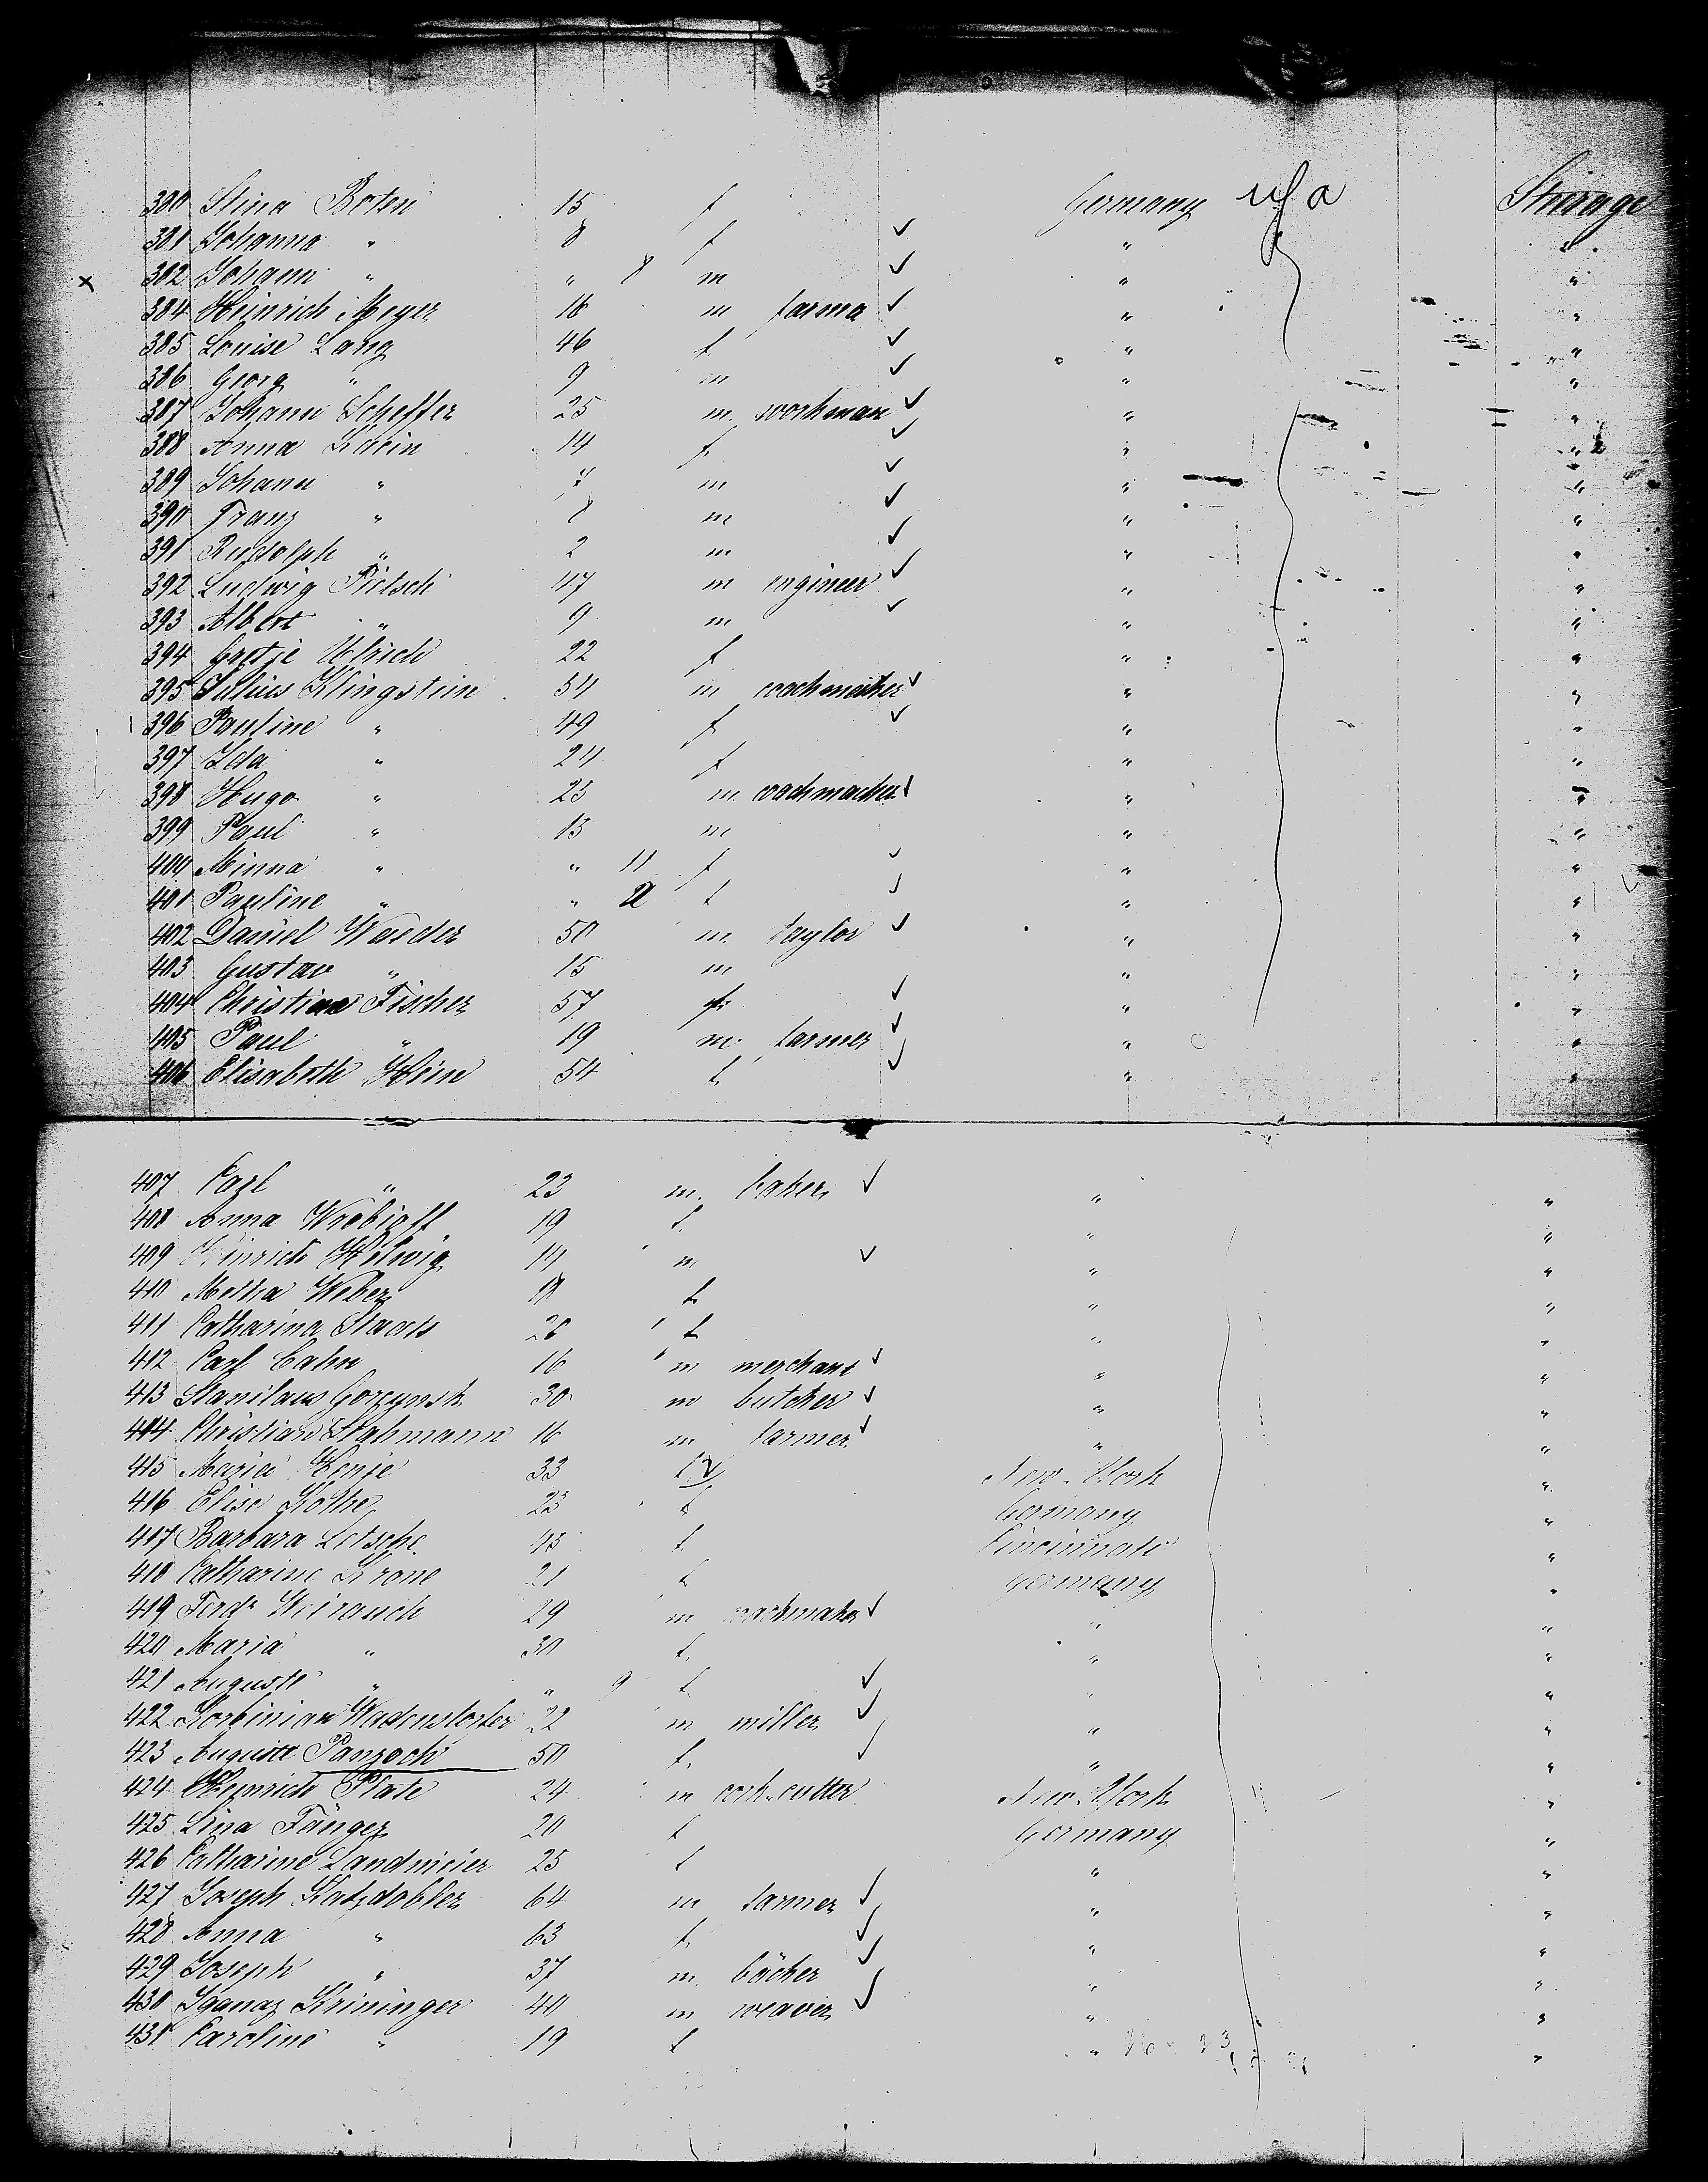 380 Stina Boten 15 f Germany usa Steerage
381 Johanna " 8 f ✓ " "
x 382 Johann " " 8 m ✓ " "
384 Heinrich Meyer 16 m farma ✓ " "
385 Louise Lang 46 f ✓ " "
386 Georg " 9 m ✓ " "
387 Johann Scheffer 25 m workman ✓ " "
388 Anna 14 f ✓ " "
389 Johann " 7 m ✓ " "
390 Franz " m ✓ " "
391 Rudolph " 2 m ✓ " "
392 Ludwig Pietsch 47 m engineer ✓ " "
393 Albert " 9 m ✓ " "
394 Gretje Ulrich 22 f " "
395 Julius Klingstein 54 m coachmaker ✓ " "
396 Pauline " 49 f ✓ " "
397 Ida " 24 f " "
398 Hugo " 23 m coachmacher ✓ " "
399 Paul " 13 m " "
400 Minna " " 11 f ✓ " "
401 Pauline " " f ✓ " "
402 Daniel 50 m taylor ✓ " "
403 Gustav " 15 m " "
404 Christine Fischer 57 f ✓ " "
405 Paul " 19 m farmer ✓ " "
406 Elisabeth Hein 54 f ✓ " "
407 Carl " 23 m baker ✓ " "
408 Anna 19 f " "
409 Heinrich Helwig 14 m ✓ " "
410 Metha Weber f " "
411 Catharina Staats f " "
412 Carl Cahn 16 m merchant ✓ " "
413 Stanilaus 30 m butcher ✓ " "
414 Christian Stahmann 16 m farmer ✓ " "
415 Maria 33 f New-York "
416 Elise Kothe 23 f Germany "
417 Barbara Letsche 43 f Cincinnati "
418 Catharine Krone 21 f Germany "
419 Ferdr Weirauch 29 m coachmaker ✓ " "
420 Maria " 30 f " "
421 Auguste " " 9 f ✓ " "
422 Korbinian 22 m miller ✓ " "
423 Auguste Panzoch 50 f ✓ " "
424 Heinrich Plate 24 m cork-cutter New-York "
425 Lina Fänger 20 f Germany "
426 Catharine Landmeier 25 f " "
427 Joseph Katzdobler 64 m farmer ✓ " "
428 Anna " 63 f ✓ " "
429 Joseph " 37 m bäcker ✓ " "
430 Iganaz Krininger 40 m weaver ✓ " "
431 Caroline " 19 f " "